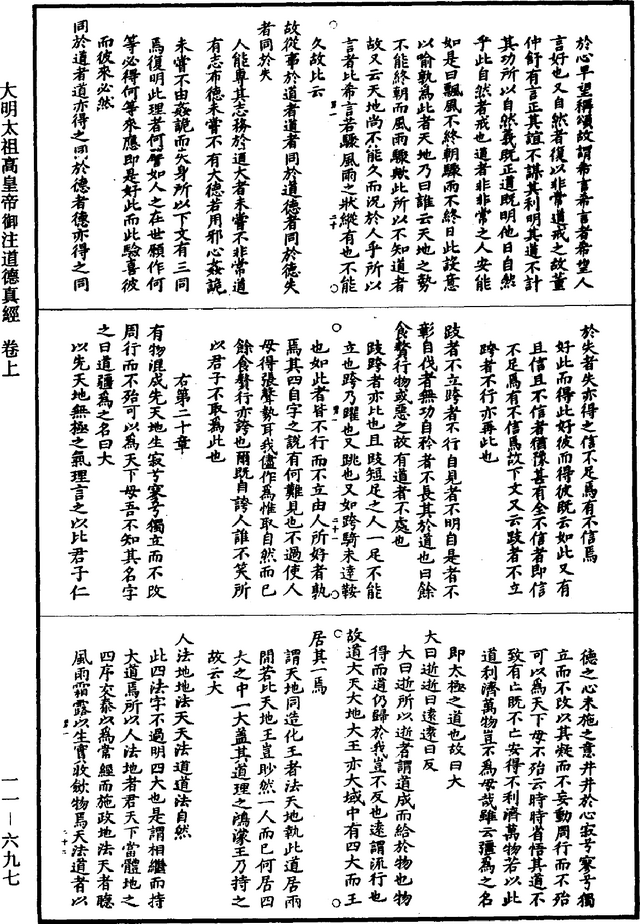 於心早望稱頌故謂希言希言者希望人
言好也又自然者復以非常道戒之故董
仲舒有言正其誼不謀其利明其道不計
其功所以自然義既正道既明他日自然
乎此自然者戒也道者非非常之人安能
如是曰飄風不終朝驟雨不終日此設意
以喻執為此者天地乃曰誰云天地之勢
不能終朝而風雨驟歟此所以不知道者
故又云天地尚不能久而況於人乎所以
言者比希言若驟風雨之狀縱有也不能
久故比云
故從事於道者道者同於道德者同於德失
者同於失
人能專其志務於道大者未嘗不非常道
有志布德未嘗不有大德若用邪心姦詭
未嘗不由姦詭而失身所以下文有三同
焉復明此理者何譬如人之在世願作何
等必得何等來應即是好此而此驗喜彼
而彼來必然
同於道者道亦得之同於德者德亦得之同
於失者失亦得之信不足焉有不信焉
好此而得此好彼而得彼既云如此又有
且信且不信者猶豫甚有全不信者即信
不足焉有不信焉故下文又云跂者不立
跨者不行亦再比也
跂者不立跨者不行自見者不明自是者不
彰自伐者無功自矜者不長其於道也曰餘
食贅行物或惡之故有道者不處也
跂跨者亦比也且跂短足之人一足不能
立也跨乃躍也又跳也又如跨騎未達鞍
也如此者皆不行而不立由人所好者孰
焉其四自字之說有何難見也不過使人
毋得張聲勢耳我儘作為惟取自然而已
餘食贅行亦誇也爾既自誇人誰不笑所
以君子不取為此也
右第二十章
有物混成先天地生寂兮寥兮獨立而不改
周行而不殆可以為天下母吾不知其名字
之曰道彊為之名曰大
以先天地無極之氣理言之以比君子仁
德之心未施之意井井於心寂兮寥兮獨
立而不改以其凝而不妄動周行而不殆
可以為天下母不殆云時時省悟其道不
致有亡既不亡安得不利濟萬物若以此
道利濟萬物豈不為母哉雖云彊為之名
即太極之道也故曰大
大曰逝逝曰遠遠曰反
大曰逝所以逝者謂道成而給於物也物
得而道仍歸於我豈不反也遠謂流行也
故道大天大地大王亦大域中有四大而王
居其一焉
謂天地同造化王者法天地執此道居兩
間若比天地王豈眇然一人而已何居四
大之中一大蓋其道理之鴻濛王乃持之
故云大
人法地地法天天法道道法自然
此四法字不過明四大也是謂相繼而持
大道焉所以人法地者君天下當體地之
四序交泰以為常經而施政地法天者聽
風雨霜露以生實收斂物焉天法道者以
大明太祖高皇帝御注道德真經　卷上
一一—六九七